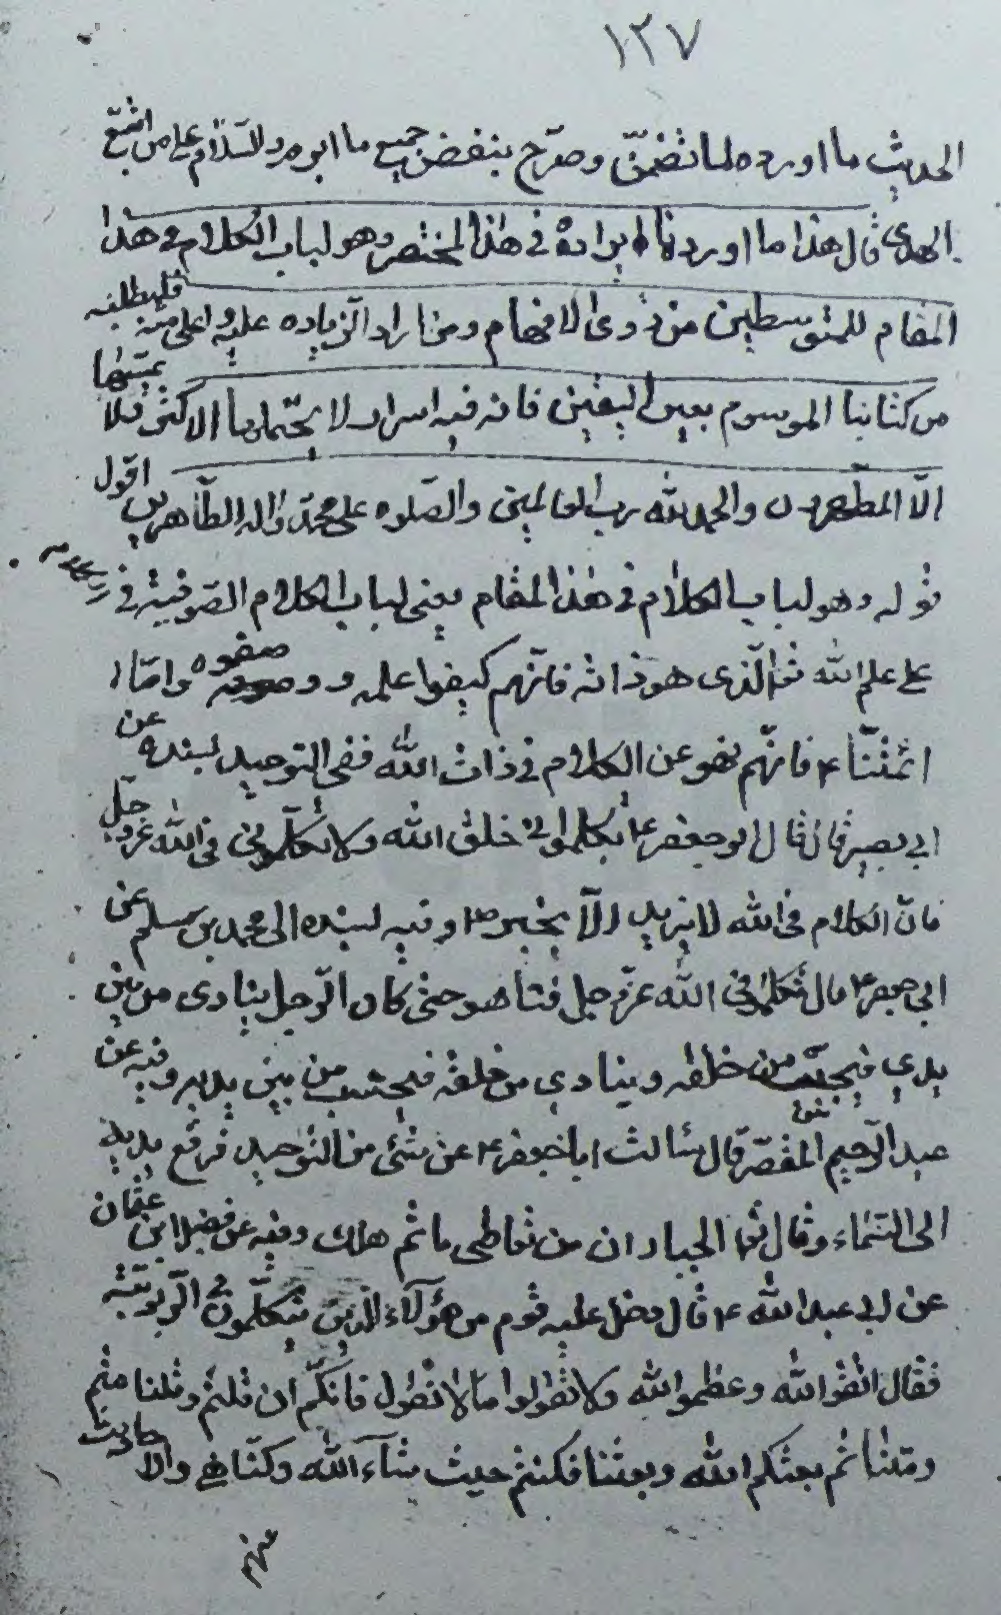 ١٢٧
الحديث ما اورده لما تضمنّ وصرّح بنقض جميع ما ابو مرد والسّلام على من اتّبع
الهدى قال هذا ما اوردنا ايراده في هذا المختصر وهو لباب الكلام في هذا
المقام للمتوسطين من ذوى الافهام ومن اراد الزياده عليه واعلى منه فليطلبه
من كتابنا الموسوم بعين اليقين فانه فيه اسرار لا يحتملها الاكثرون لا يمسّها
الّا المطّهرون والحمد لله رب العالمين والصّلوه على محمد واله الطّاهرين اقول
قوله وهو لباب الكلام في هذا المقام يعنى لباب الكلام الصّوفية في كلامه
على علم الله تعالى الّذى هو ذاته فانّهم كيفوا علمه و وصفوه وامّا
ائمتنا ع فانّهم نهو عن الكلام في ذات الله ففى التوحيد بسنده عن
ابي بصير قال قال ابو جعفر ع تكلموا في خلق الله ولا تكلّموا في الله عزّ وجلّ
فانّ الكلام في الله لا يزيد الّا تحيرا وفيه بسنده الى محمد بن مسلم عن
ابي جعفر ع قال تكلموا في الله عزّ وجل فتاهو حتى كان الرّجل ينادى من بين
يدي فيجيب من خلفه وينادي من خلفه فيجيب من بين يديه وفيه عن
عبد الرّحيم القصير قال سئالت ابا جعفر ع عن شئ من التوحيد فرفع يديه
الى السّماء وقال تعا الجبار ان من تعاطى ما ثم هلك وفيه عن فضيل ابن عثمان
عن ابي عبد الله ع قال دخل عليه قوم من هؤلآء الذين يتكلّمون في الرّبوبيّة
فقال اتقوا الله وعظموا الله ولا تقولوا ما لا نقول فانكّم ان قلتم وقلنا متّم
ومتنا ثم بعثكم الله وبعثنا فكنتم حيث شآء الله وكنّا في والاحاديث
عنهم